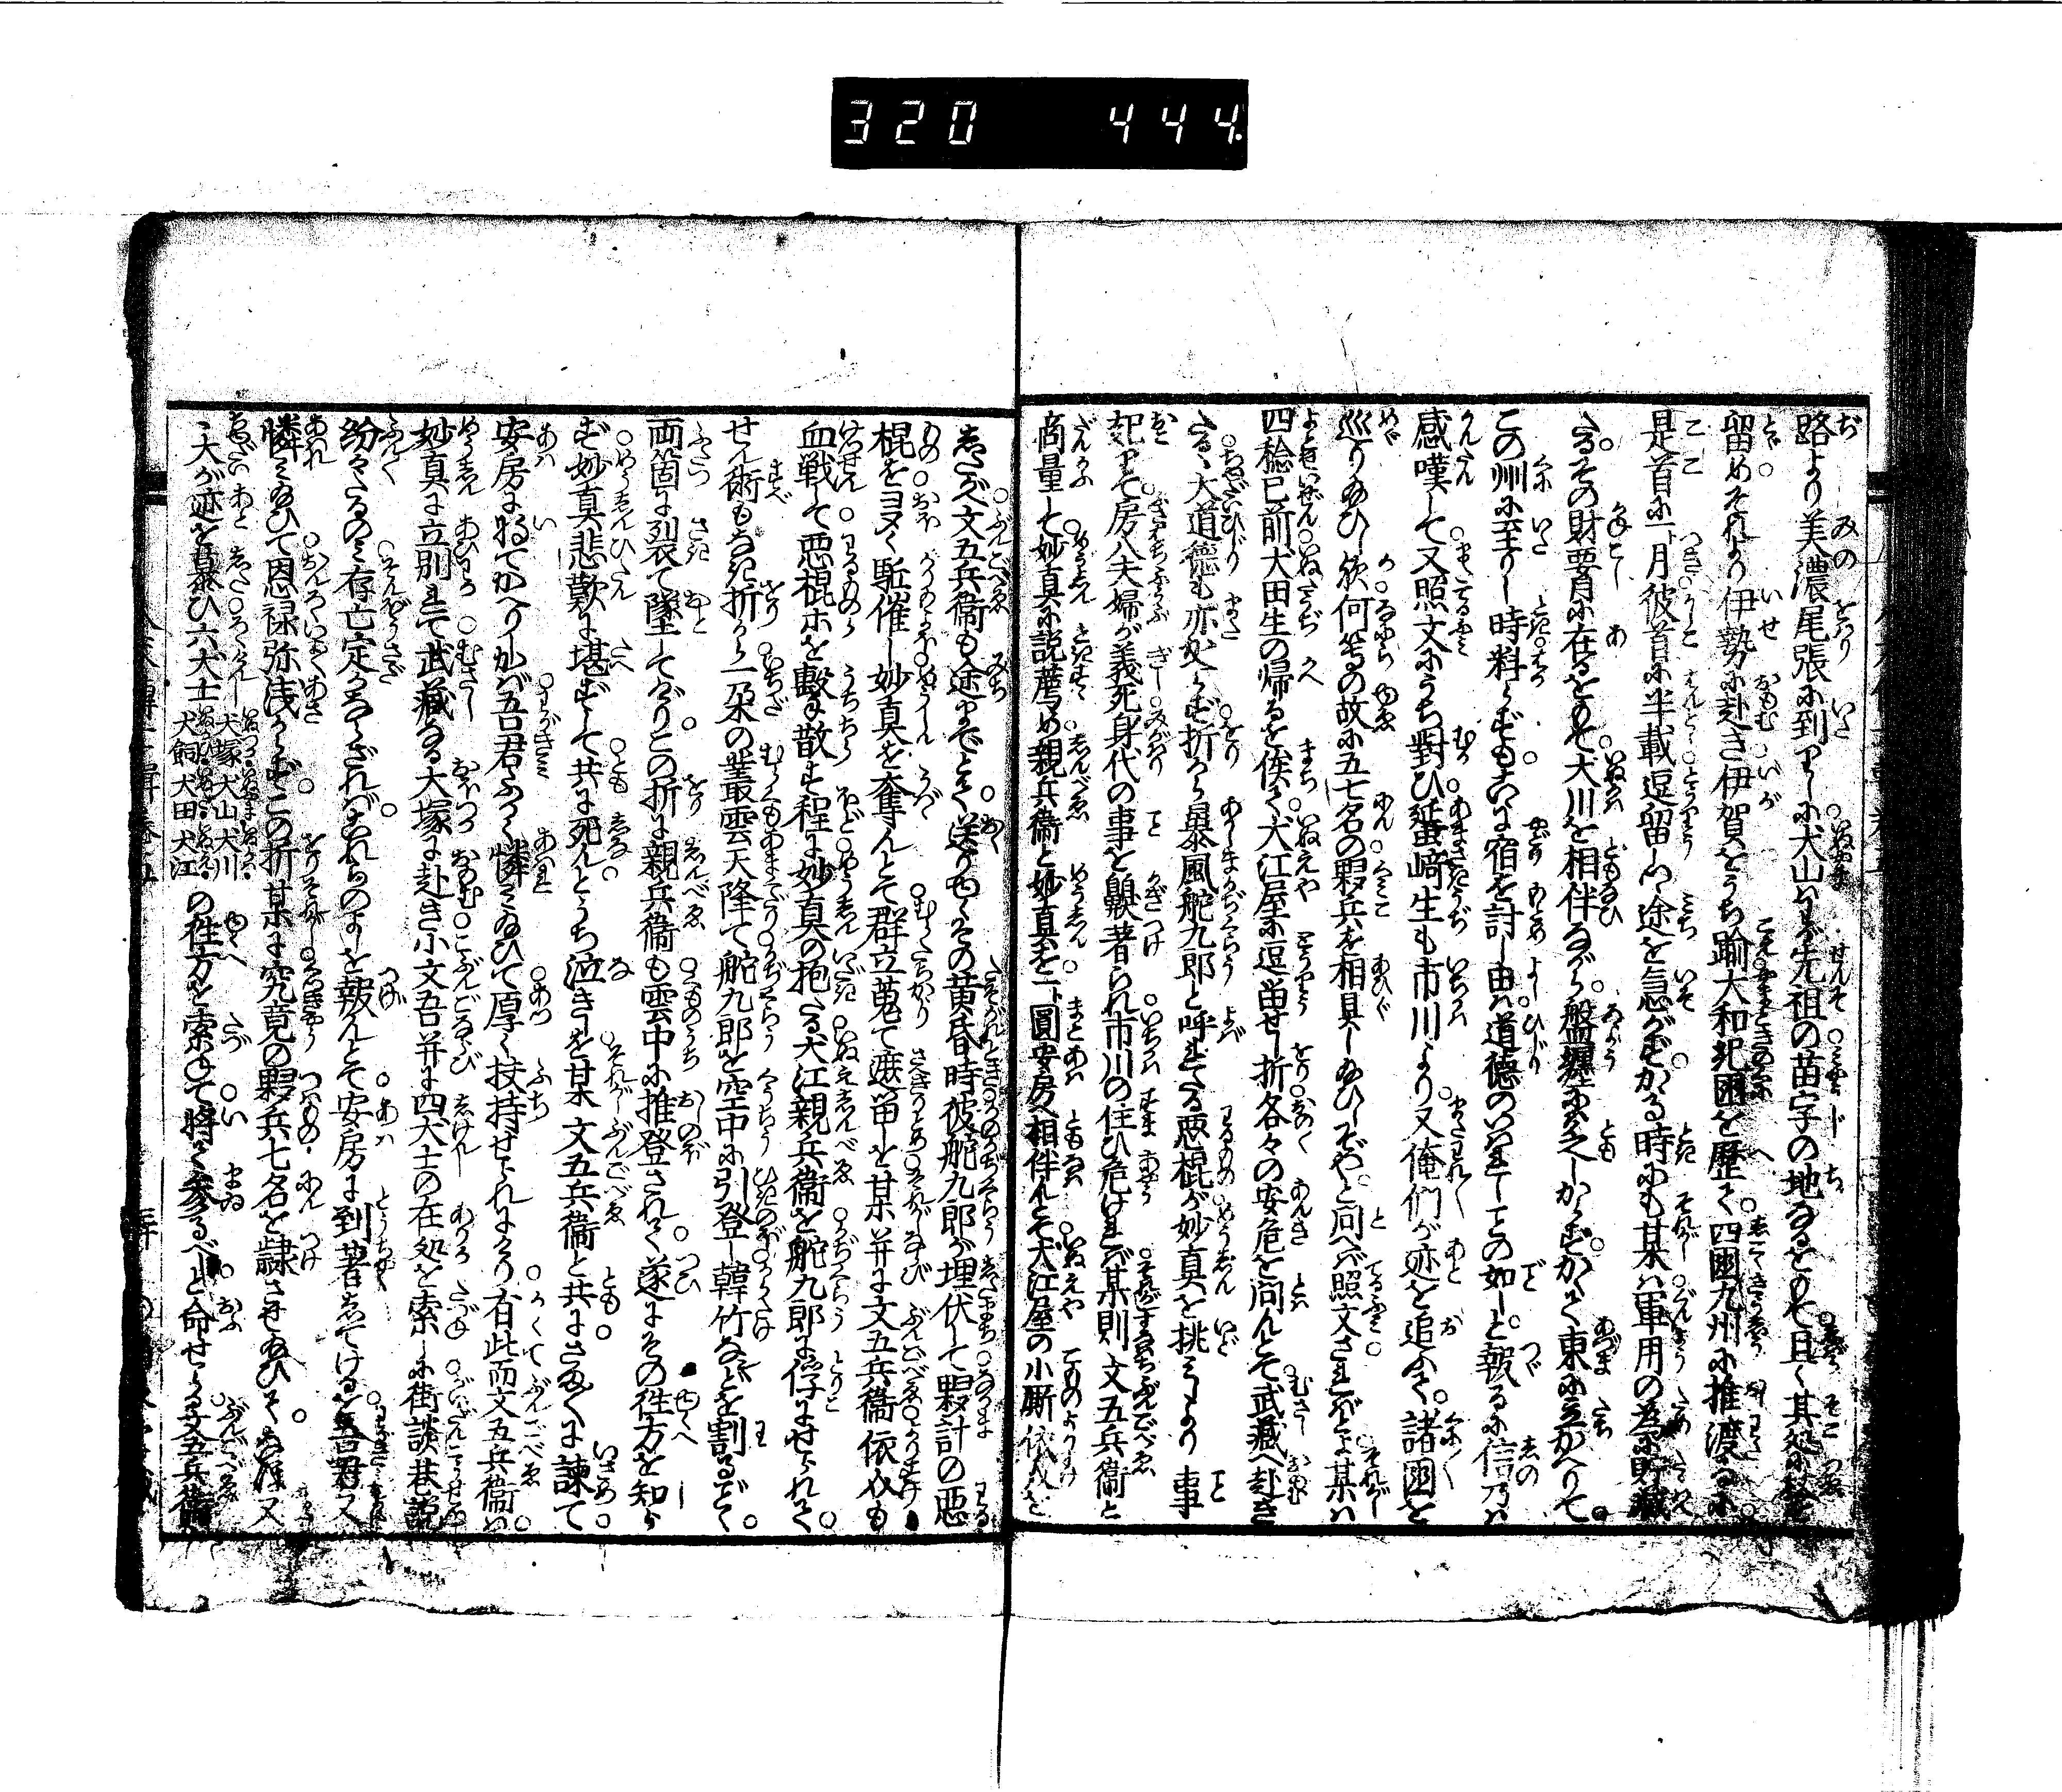 320 444.
路より美濃尾張に到りしに犬山はわが先祖の苗字の地なるをもて且く其処に
留めそれより伊勢に赴き伊賀をうち踰大和紀国を歴て四国九州に推渡るに
是首に一月彼首に半載逗留しつ途を急がずかゝる時にも某は軍用の為に貯蔵
たるその財要身に在るをもて犬川を相伴ながら盤纏に乏しからずかくて東に立かへりて
この州に至りし時料らずもこゝに宿を討し由は道徳のいはれしことの如しと報るに信乃は
感嘆して又照文にうち対ひ蜑崎生も市川より又俺們が迹を追ふて諸国を
巡り給ひし歟何等の故に五七名の夥兵を相具し給ひしぞやと問へば照文さればとよ某は
四稔已前犬田生の帰るを俟て犬江屋に逗留せし折各々の安危を問んとて武蔵へ赴き
たる、大道徳も亦來らず折から暴風舵九郎と呼れたる悪棍が妙真を挑みしより事
起りて房八夫婦が義死身代の事を観著られ市川の住ひ危ければ某則文五兵衛と
商量して妙真に説薦め親兵衛と妙真を一圓安房へ相伴んとて犬江屋の小厮依介を
したがへ文五兵衛も途までとて送りゆくその黄昏時彼舵九郎が埋伏して夥計の悪
棍を多く駈催し妙真を奪んとて群立蒐て遮留しを某并に文五兵衛依介も
血戦して悪棍ホを撃ち散す程に妙真の抱たる犬江親兵衛を舵九郎に俘にせられて
せん術もなき折から一朶の叢雲天降て舵九郎を空中に引登し韓竹などを割るごとく
両箇に裂て墜してけりこの折に親兵衛も雲中に推登されて遂にその往方を知ら
ず妙真悲歎に堪ずして共に死んとうち泣きしを某文五兵衛と共にさま〴〵に諫て
安房に将てかへりしかば吾君ふかく憐み給ひて厚く扶持せられにけり有此而文五兵衛は
妙真に立別れて武蔵なる大塚に赴き小文吾并に四犬士の在処を索しに街談巷説
紛々たるのみ存亡定かならざればこれらのよしを報んとて安房に到著してけるを吾君又
憐み給ひて恩禄弥浅からずこの折某に究竟の夥兵七名を隷させ給ひてなほ又
ヽ大が迹を慕ひ六犬士犬塚犬山犬川犬飼犬田犬江の往方を索ねて将て参るべしと命せらる文五兵衛